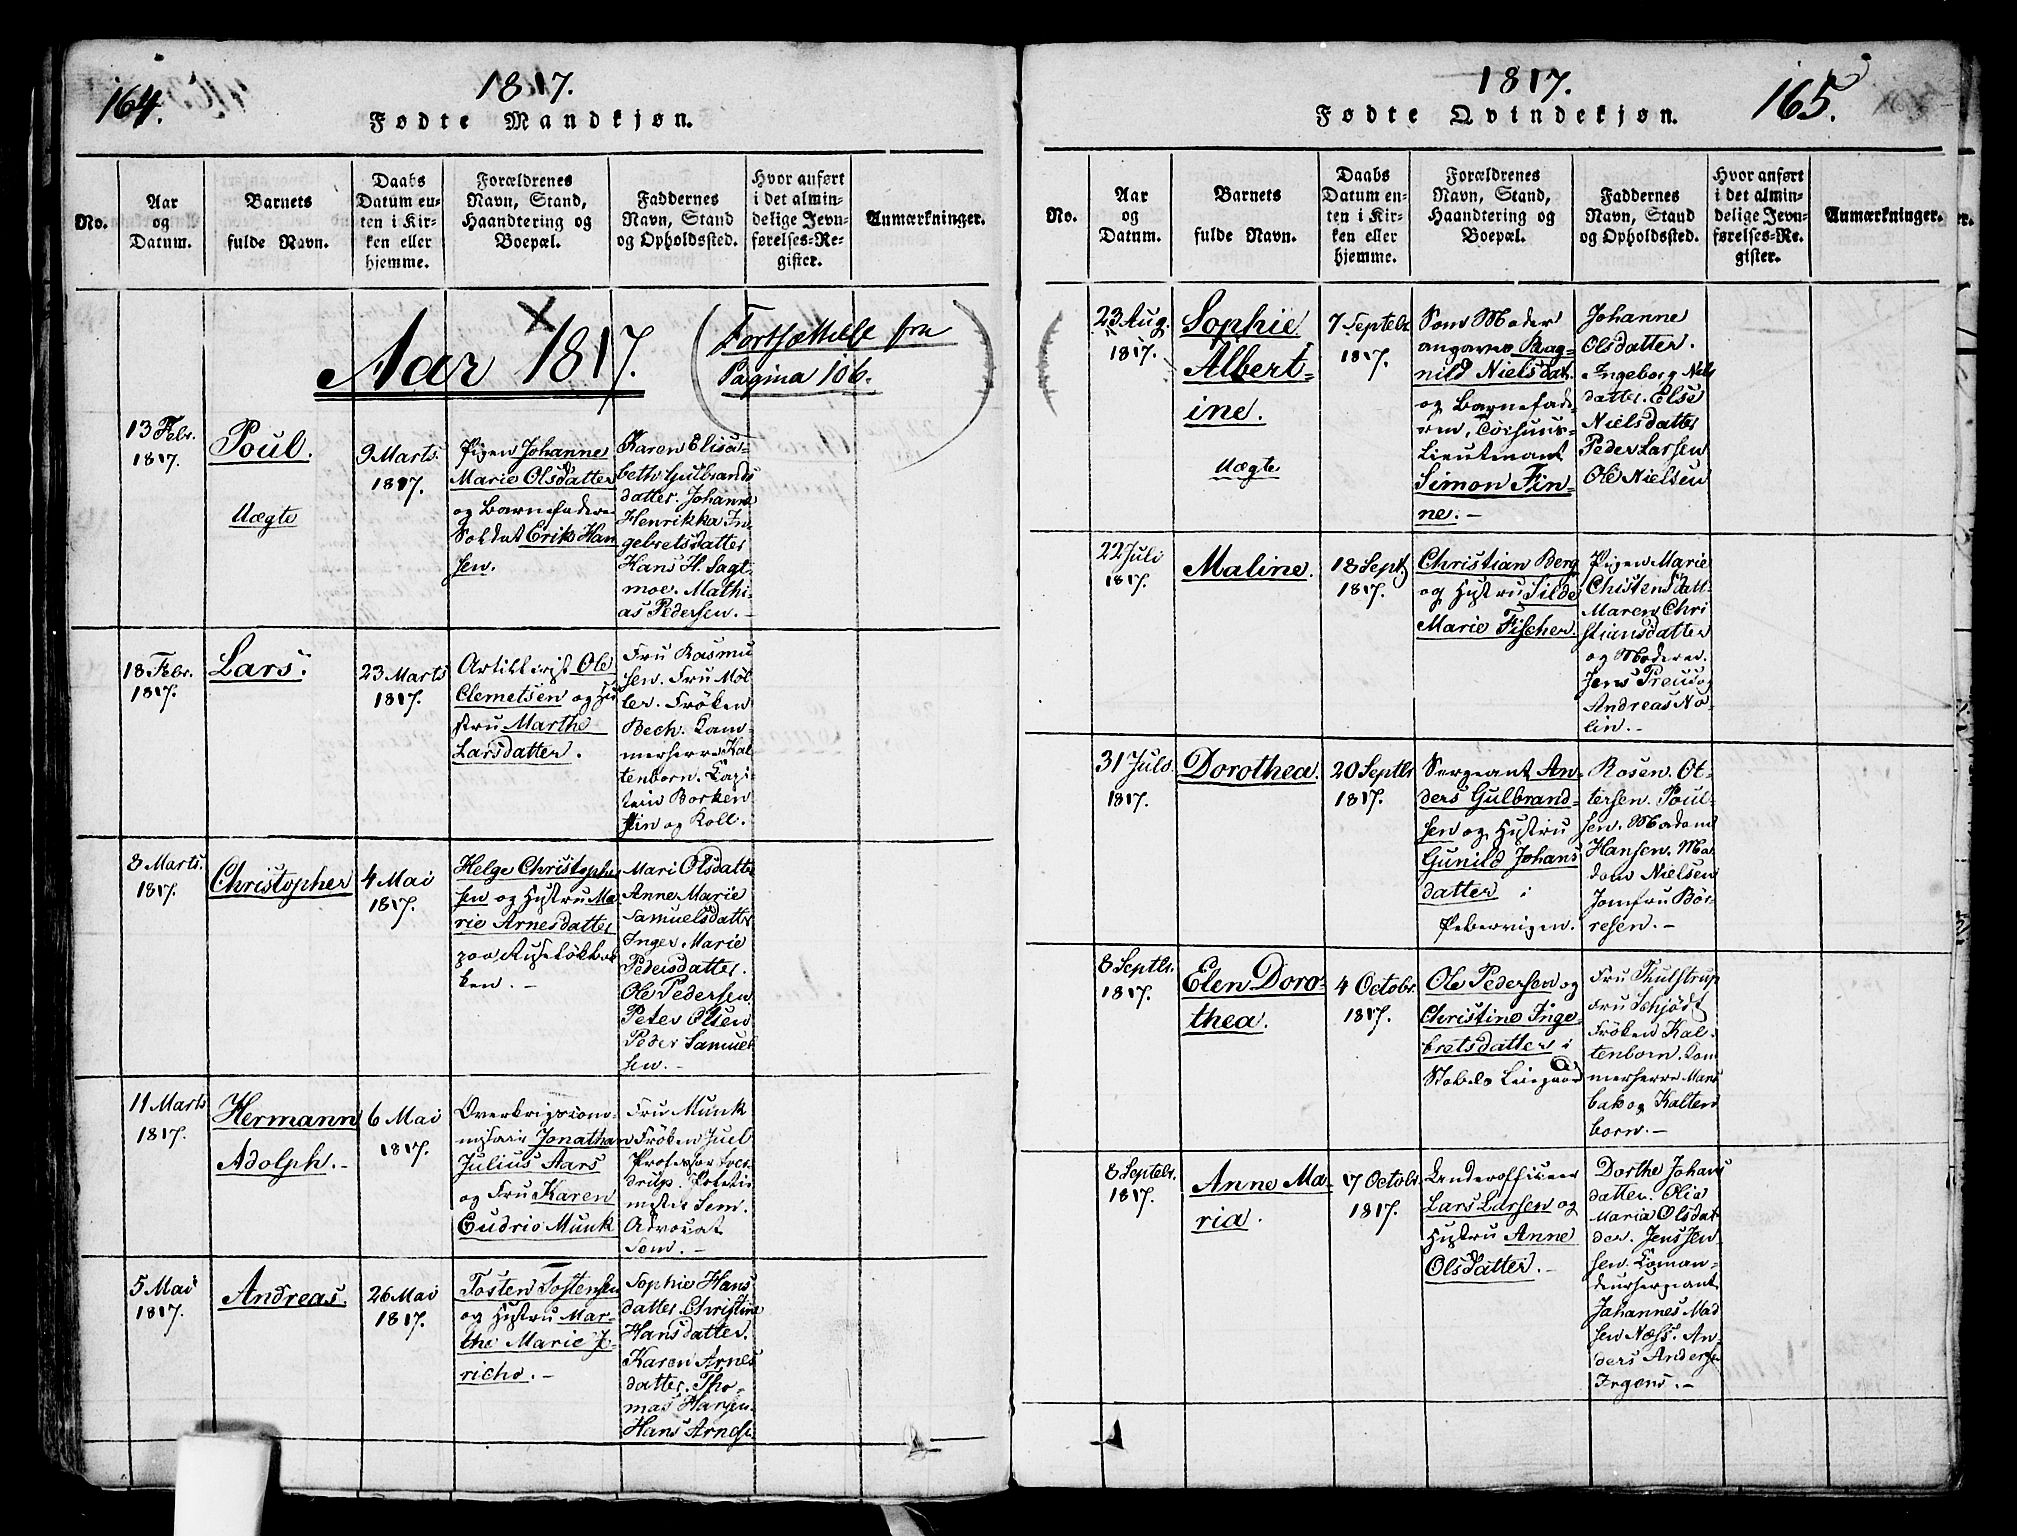 164.
1817.
Fødte Mandkjøn.
No.
Aar
og
Datum.
Barnets
fulde Navn.
Daabs
Datum en-
ten i Kir-
ken eller
hjemme.
Forældrenes
Navn, Stand,
Haandtering og
Boepæl.
Faddernes
Navn, Stand
og Opholdssted.
Hvor anført
i det almin-
delige Jevn-
førelses-Re-
gister.
Anmærkninger.
Aar 1817.
(Fortsættelse fra
Pagina 106.)
13 Febr.
1817.
Poul.
Uægte
9 Marts.
1817.
Pigen Johanne
Marie Olsdatter
og Barnefader
Soldat Erik Han
sen.
Karen Elisa-
beth Gulbrands
datter. Johanne
Henrikka In-
gebretsdatter
Hans H. Sagt-
moe. Mathi-
as Pedersen.-
18 Febr.
1817.
Lars.
23 Marts
1817.
Artillerist Ole
Clemetsen og Hu
stru Marthe
Larsdatter.
Fru Rasmu
sen. Fru Møl-
ler. Frøken
Bech. Kam-
merherre Kal-
tenborn. Capi-
tain Borken
stin og Koll.
8 Marts.
1817.
Christopher
4 Mai
1817.
Helge Christophe
sen og Hustru Ma
rie Arnesdatter
paa Ruseløkbak
ken.-
Mari Olsdatte
Anne Marie
Samuelsdatter
Inger Marie
Pedersdatter.
Ole Pedersen
Peter Olsen
Peder Samuel
sen.-
11 Marts
1817.
Hermann
Adolph.-
6 Mai
1817.
Overkrigscom-
missair Jonathan
Julius Aars
og Fru Karen
Cudrio Munk
Fru Munk
Frøken Juel
Professor Sver
drup.
Sem.
Advocat
Sem.-
5 Mai
1817.
Andreas.
26 Mai
1817.
Tosten Tostensen
og Hustru Mar-
the Marie J-
richo.-
Sophie Hans
datter. Christine
Hansdatter.
Karen Arnes
datter. Tho-
mas Hansen.
Hans Arnese
1817.
165.
Fødte Qvindekjøn.
No.
Aar
og
Datum.
Barnets
fulde Navn.
Daabs
Datum en-
ten i Kir-
ken eller
hjemme.
Forældrenes
Navn, Stand,
Haandtering og
Boepæl.
Faddernes
Navn, Stand
og Opholdssted.
Hvor anført
i det almin-
delige Jevn-
førelses-Re-
gister.
Anmærkninger.
23 Aug.
1817.
Sophie
Albert-
ine.
Uægte
7 Septbr
1817.
Som Moder
angaves Rag-
nild Nielsdat.
og Barnefade-
ren,
Lieutenant
Simon Fin-
ne.-
Johanne
Olsdatter.
Ingeborg Niels
datter. Else
Nielsdatter
Peder Larsen
Ole Nielsen
22 Juli
1817.
Maline.
18 Sept.
1817.
Christian Berg
og Hustru Silde
Marie Fischer.
Pigen Marie
Christensdatt
Maren Chri
stiansdatter
og Moderen.
Jens Preus og
Andreas No-
lin.-
31 Juls.
1817.
Dorothea.
20 Septbr
1817.
Sergeant An-
ders Gulbrand-
sen og Hustru
Gunild Johans
datter i
Pebervigen.
Rosen. Ot-
tersen. Poul-
sen. Madam
Hansen. Ma
dam Nielsen
Jomfru Bør-
resen.-
8 Septbr.
1817.
Elen Doro-
thea.
4 Octobr.
1817.
Ole Pedersen og
Christine Inge-
bretsdatter i
Stabels Leiegaard
Fru Thulstrup
Fru Schjødt
Frøken Kal-
tenborn. Kam
merherre Mans
bak og Kalten
born.-
8 Septebr.
1817.
Anne Ma-
ria.
7 Octobr.
1817.
Underofficeer
Lars Larsen og
Hustru Anne
Olsdatter.-
Dorthe Johans
datter. Olia
Maria Olsdat
ter. Jens Jen
sen. Koman-
deursergeant
Johannes Mad
sen Næss. An-
ders Anderse
Irgens.-